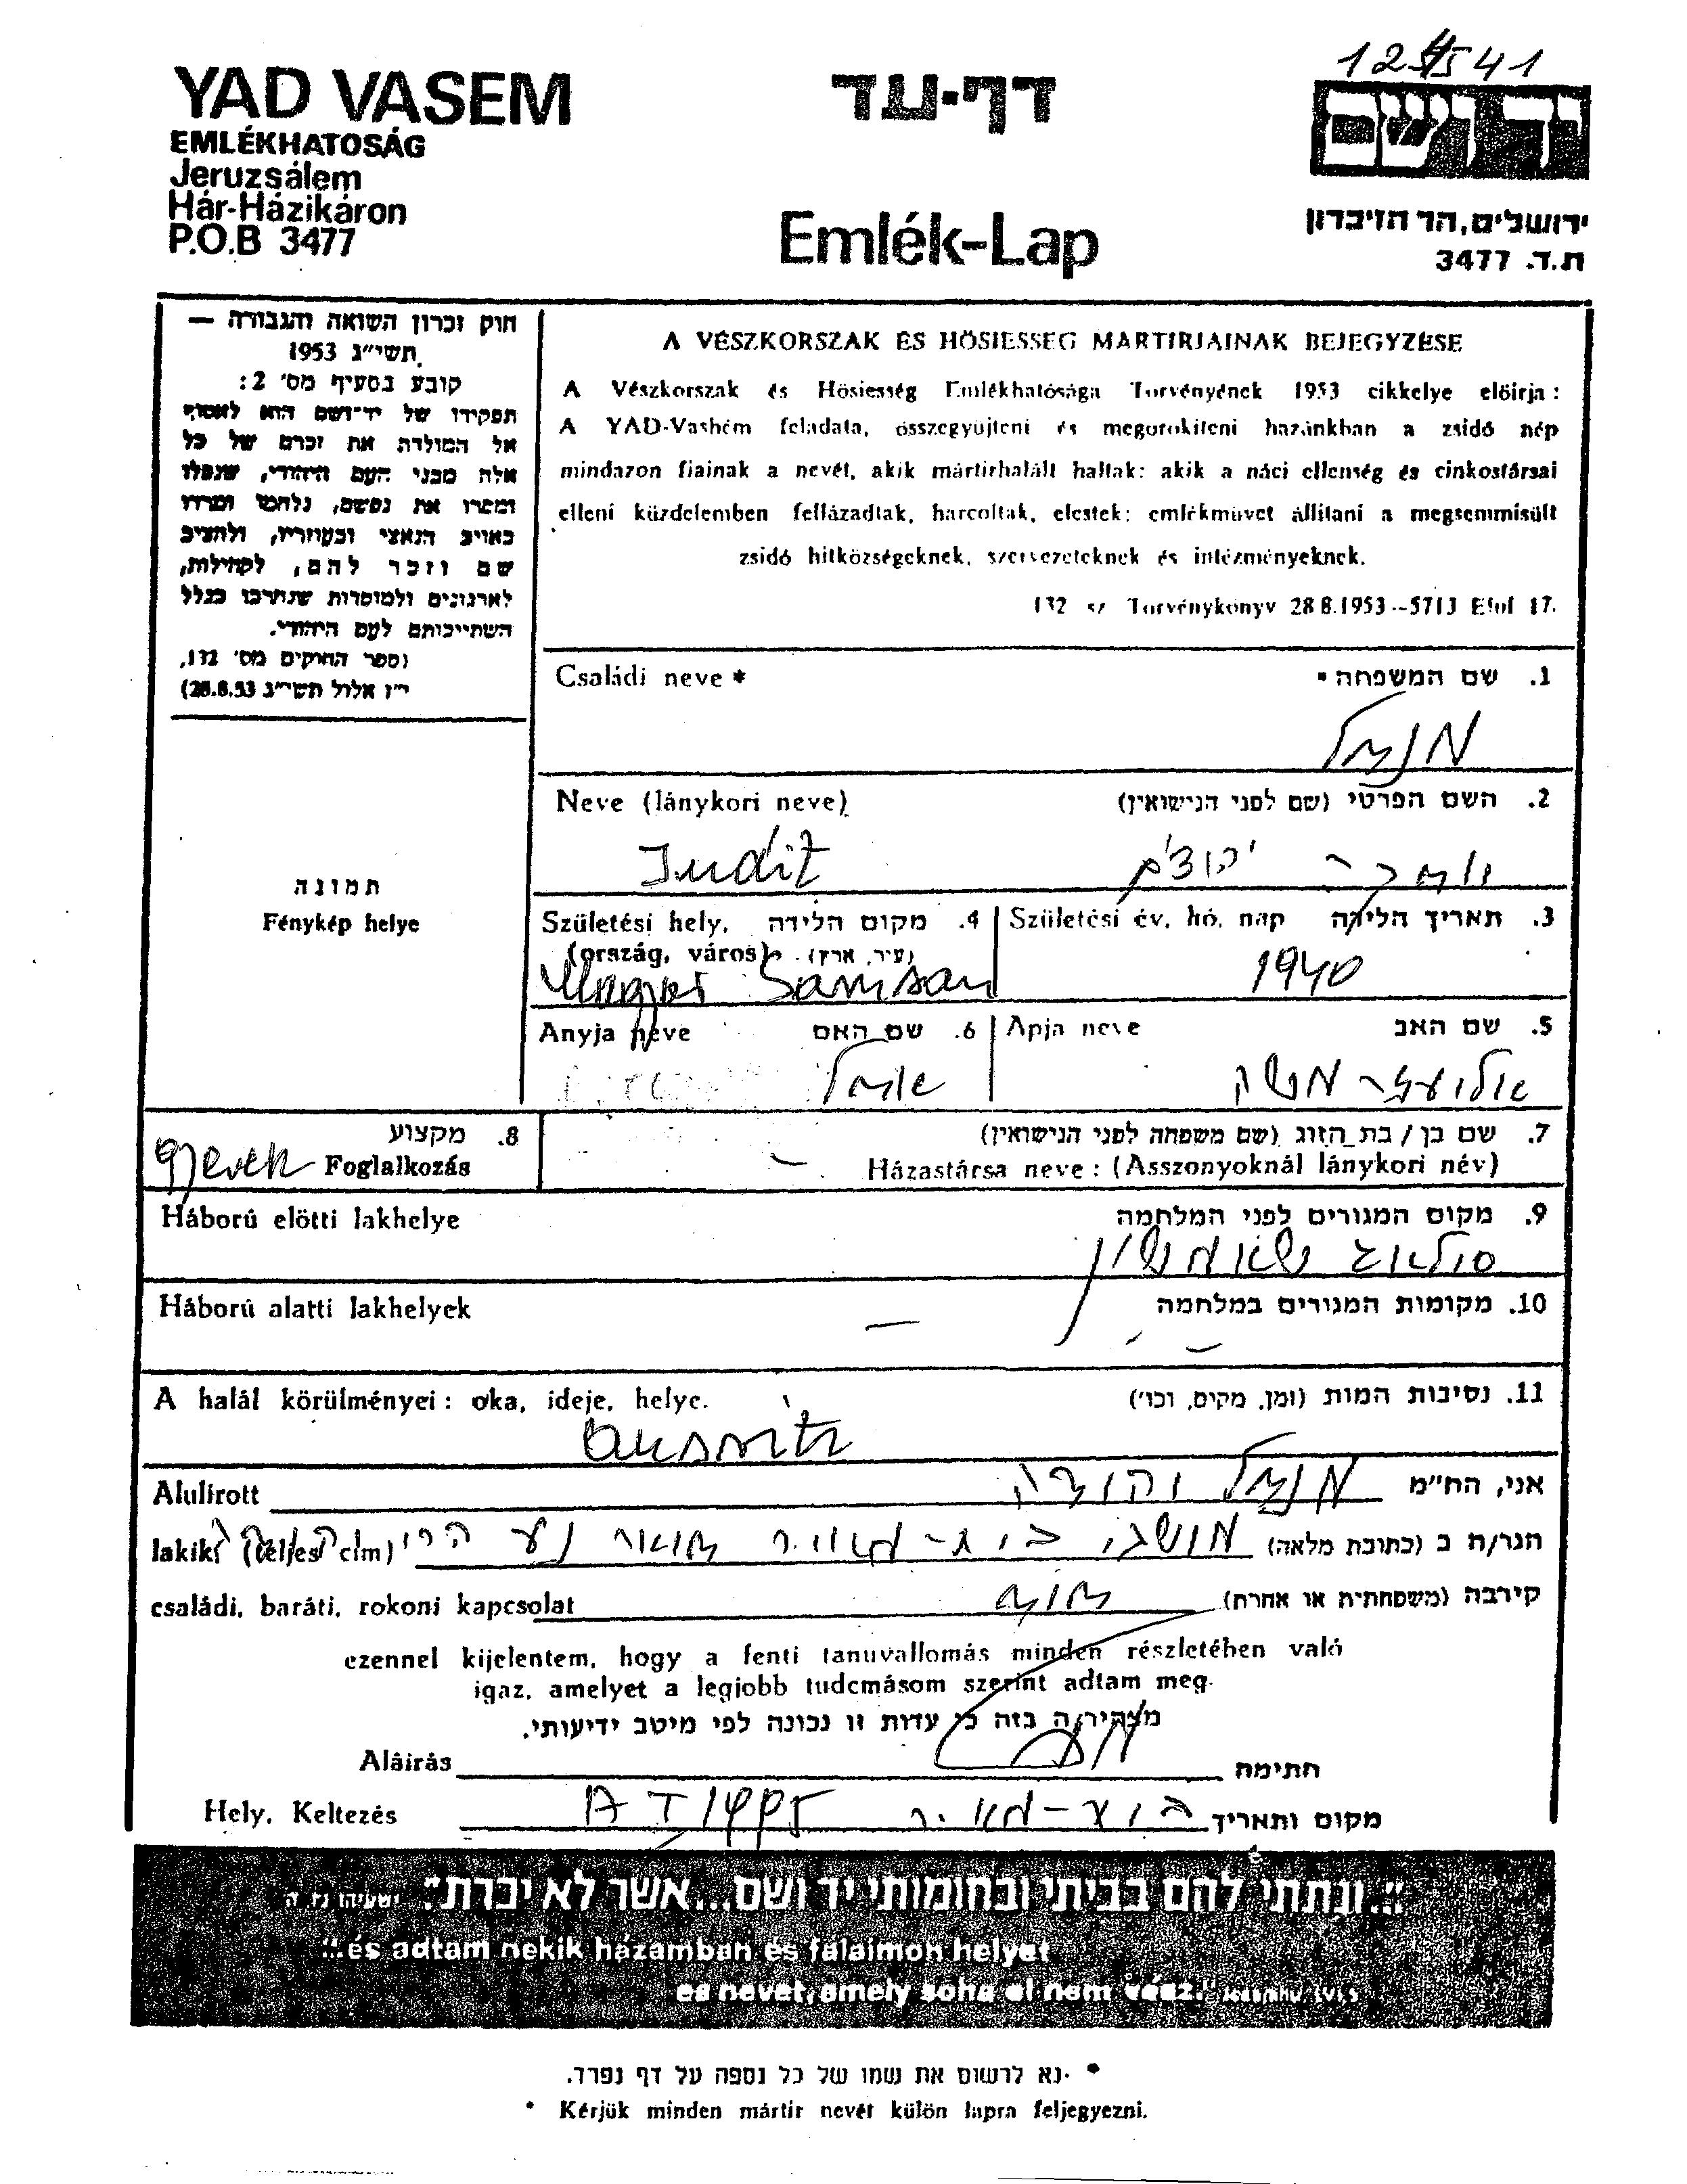 124541
YAD VASEM
EMLÉKHATOSÁG
Jeruzsálem
Hár-Házikáron
P.O.B 3477
דף-עד
Emlék-Lap
יד ושם
ירושלים, הר הזיכרון
ת.ד. 3477
חוק זכרון השואה והגבורה —
תשי״ג 1953
קובע בסעיף מס׳ 2:
תפקידו של יד־ושם הוא לאסוף
אל המולדת את זכרם של כל
אלה מבני העם היהודי, שנפלו
ומסרו את נפשם, נלחמו ומרדו
באויב הנאצי ובעוזריו, ולהציב
שם וזכר להם, לקהילות,
לארגונים ולמוסדות שנחרבו בגלל
השתייכותם לעם היהודי.
(ספר החוקים מס׳ 132,
י״ז אלול תשי״ג 28.8.53)
A VÉSZKORSZAK ÉS HÖSIESSEG MARTIRJAINAK BEJEGYZÉSE
A Vészkorszak és Hösiesség Emlékhatósága Torvényének 1953 cikkelye elöirja:
A YAD-Vashém feladata, összegyüjteni és megorokiteni hazánkban a zsidó nép
mindazon fiainak a nevét, akik mártirhalált haltak: akik a náci ellenség és cinkostársai
elleni küzdelemben fellázadtak, harcoltak, elestek: emlékmüvet állitani a megsemmisült
zsidó hitközségeknek, szervezeteknek és intézményeknek.
132 sz Torvénykönyv 28 8.1953--5713 Elul 17.
Családi neve *
1. שם המשפחה *
מנדל
Neve (lánykori neve)
2. השם הפרטי (שם לפני הנישואין)
Judit
תמונה
Fénykép helye
Születési hely, (ország, város)
4. מקום הלידה (עיר, ארץ)
Születési év, hó, nap
3. תאריך הלידה
1940
Anyja neve
6. שם האם
Apja neve
5. שם האב
אליעזר משה
8. מקצוע
gyerek
Foglalkozás
7. שם בן / בת הזוג (שם משפחה לפני הנישואין)
Házastársa neve: (Asszonyoknál lánykori név)
—
Háború elötti lakhelye
9. מקום המגורים לפני המלחמה
Háború alatti lakhelyek
10. מקומות המגורים במלחמה
—
A halál körülményei: oka, ideje, helye.
11. נסיבות המות (זמן, מקום, וכו׳)
Ausvitz
Alulirott
אני, הח״מ
מנדל יהודה
lakik (teljes cim)
הגר/ה ב (כתובת מלאה)
מושב בית-מאיר
családi, baráti, rokoni kapcsolat
קירבה (משפחתית או אחרת)
ezennel kijelentem, hogy a fenti tanuvallomás minden részletében való
igaz, amelyet a legjobb tudcmásom szerint adtam meg.
מצהיר/ה בזה כי עדות זו נכונה לפי מיטב ידיעותי.
Aláirás
חתימה
Hely, Keltezés
מקום ותאריך
בית-מאיר
״...ונתתי להם בביתי ובחומותי יד ושם...אשר לא יכרת״. ישעיהו נו ה
"..és adtam nekik házamban és falaimon helyet
es nevet, amely soha el nem vész." Jesájáhu LVI 5
* נא לרשום את שמו של כל נספה על דף נפרד.
* Kérjük minden mártir nevét külön lapra feljegyezni.